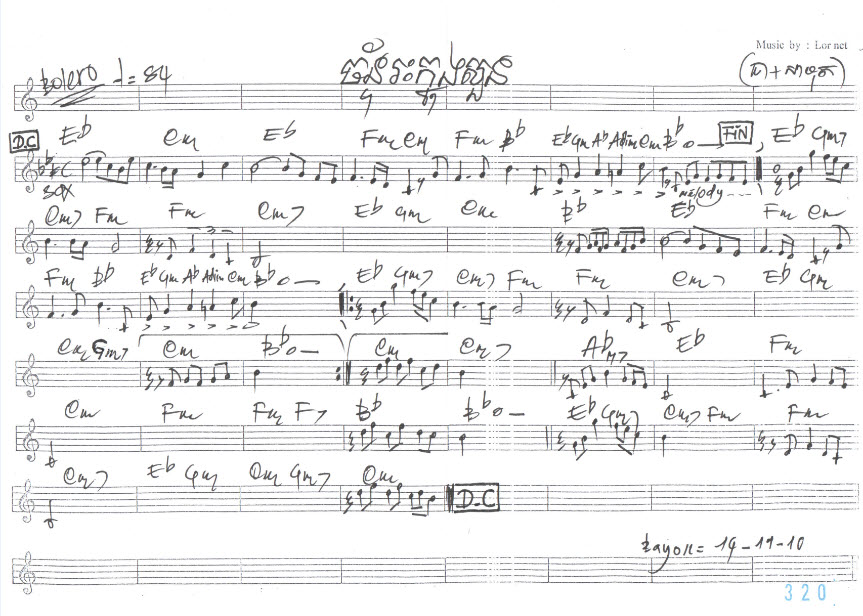 Music by : Lor net
Bolero ♩= 84
D.C Eb Cm Eb Fm Cm Fm Bb Eb Gm Ab Adim Cm Bb FiN Eb Gm7
SOX MELODY
Cm7 Fm Fm Cm7 Eb Gm Cm Bb Eb Fm Cm
Fm Bb Eb Gm Ab Adim Cm Bb Eb Gm7 Cm7 Fm Fm Cm7 Eb Gm
Cm Gm7 Cm Bb Cm Cm7 AbM7 Eb Fm
Cm Fm Fm F7 Bb Bb Eb Gm7 Cm7 Fm Fm
Cm7 Eb Gm Cm Gm7 Cm
D.C
320